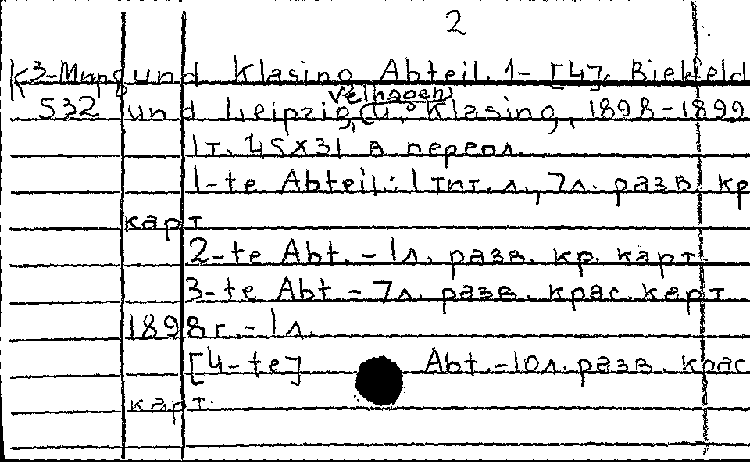 2
К3-Мирд und Klasing Abteil. 1-[4], Bielefeld
532 und Leipzig, Velhagen u. Klasing, 1898-1899
1т. 45х31 в перепл.
1-te Abteil: 1 тит. л., 7л. разв. кр
карт
2-te Abt. - 1л. разв. кр. карт
3-te Abt - 7л. разв. крас. карт
1898г. - 1л.
[4-te] Abt. - 10л. разв. крас
карт.